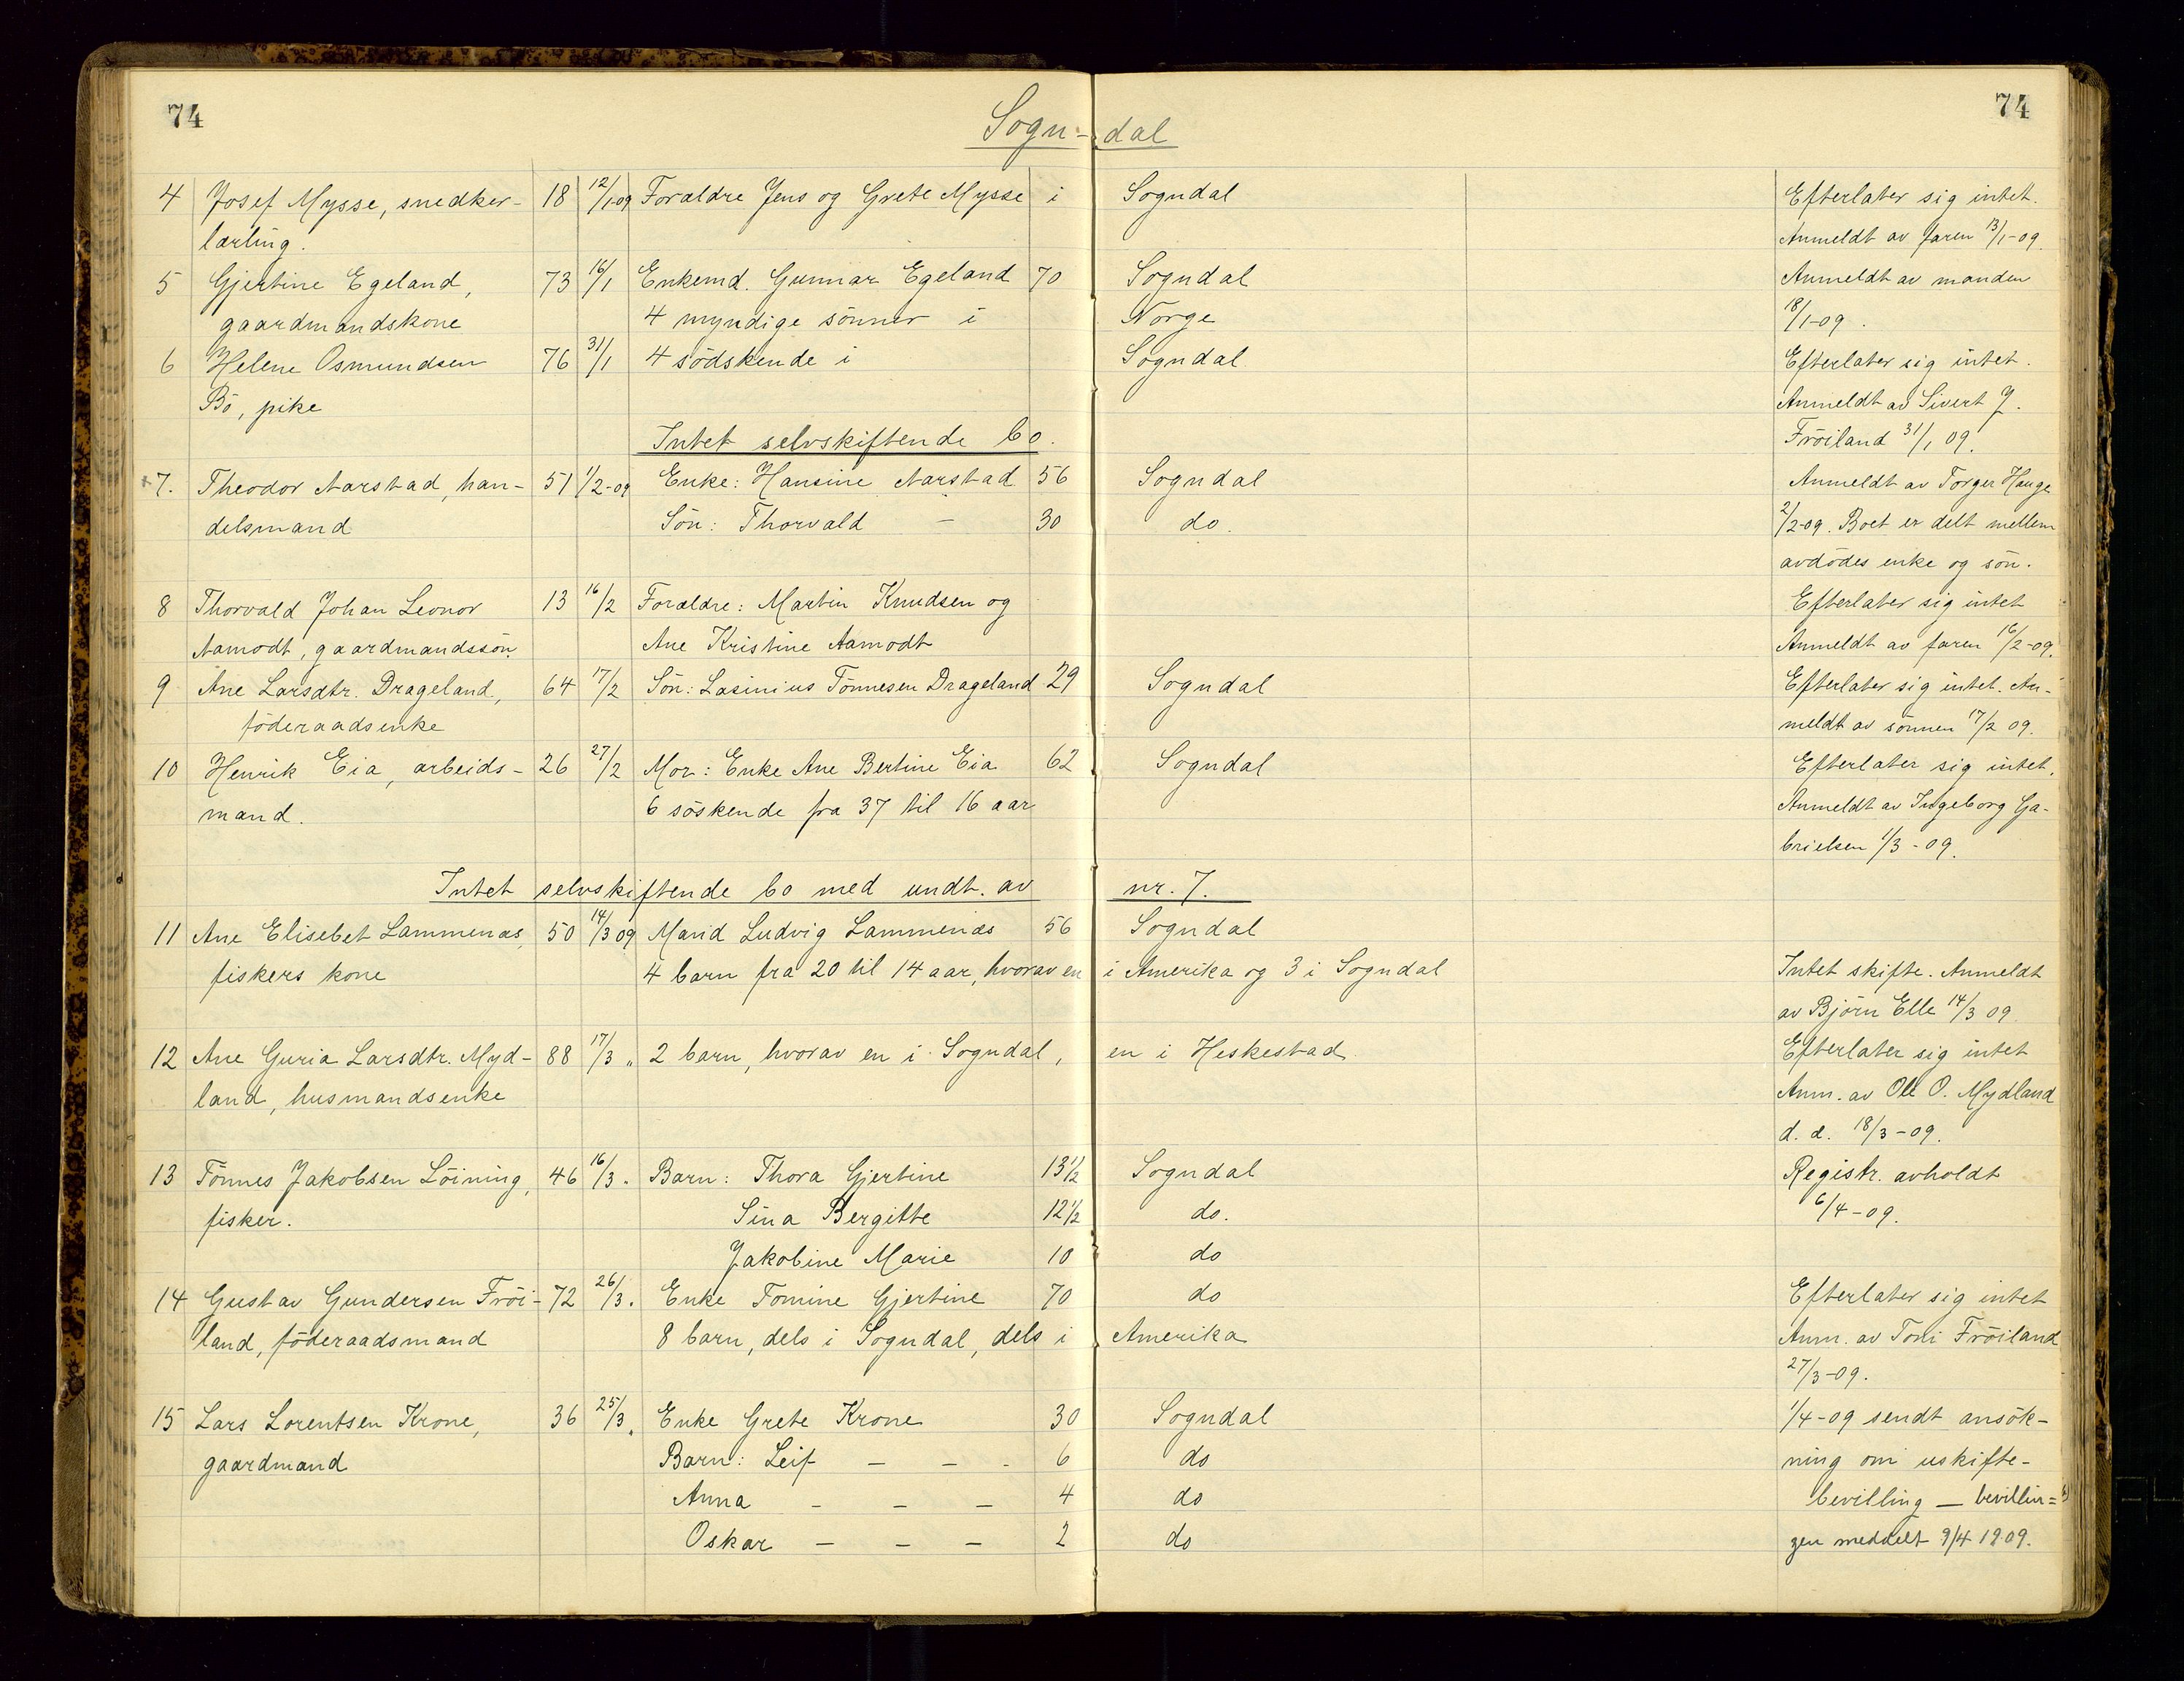 74
74
Sogn-dal
4 Josef Mysse, snedker- 18 12/1-09 Forældre Jens og Grete Mysse i Sogndal Efterlater sig intet.
lærling. Anmeldt av faren 13/1-09.
5 Gjertine Egeland, 73 16/1 Enkemd. Gunnar Egeland 70 Sogndal Anmeldt av manden
gaardmandskone 4 myndige sönner i Norge 18/1-09.
6 Helene Osmundsen 76 31/1 4 södskende i Sogndal Efterlater sig intet.
Bö, pike Anmeldt av Sivert J.
Intet selvskiftende bo. Fröiland 31/1 09.
+7. Theodor Aarstad, han- 51 1/2-09 Enke: Hansine Aarstad 56 Sogndal Anmeldt av Torger Hauge
delsmand Sön: Thorvald — 30 do. 2/2-09. Boet er delt mellem
avdödes enke og sön.
8 Thorvald Johan Leonor 13 16/2 Forældre: Martin Knudsen og Efterlater sig intet
Aamodt, gaardmandssön. Ane Kristine Aamodt Anmeldt av faren 16/2-09.
9 Ane Larsdtr. Drageland, 64 17/2 Sön: Lasinius Tönnesen Drageland 29 Sogndal Efterlater sig intet. An-
föderaadsenke meldt av sönnen 17/2 09.
10 Henrik Eia, arbeids- 26 27/2 Mor: Enke Ane Bertine Eia 62 Sogndal Efterlater sig intet.
mand. 6 söskende fra 37 til 16 aar Anmeldt av Ingeborg Ga-
brielsen 1/3-09.
Intet selvskiftende bo med undt. av nr. 7.
11 Ane Elisebet Lammenæs, 50 14/3 09 Mand Ludvig Lammenæs 56 Sogndal
fiskers kone 4 barn fra 20 til 14 aar, hvorav en i Amerika og 3 i Sogndal Intet skifte. Anmeldt
av Björn Elle 14/3 09
12 Ane Guria Larsdtr. Myd- 88 17/3 „ 2 barn, hvorav en i Sogndal, en i Heskestad. Efterlater sig intet
land, husmandsenke Anm. av Ole O. Mydland
d. d. 18/3-09.
13 Tönnes Jakobsen Löining, 46 16/3. Barn: Thora Gjertine 13 1/2 Sogndal Registr. avholdt
fisker. Sina Bergitte 12 1/2 do. 6/4-09.
Jakobine Marie 10 do
14 Gustav Gundersen Fröi- 72 26/3. Enke Tomine Gjertine 70 do Efterlater sig intet
land, föderaadsmand 8 barn, dels i Sogndal, dels i Amerika Anm. av Toni Fröiland
27/3-09.
15 Lars Lorentsen Krone, 36 25/3. Enke Grete Krone 30 Sogndal 1/4-09 sendt ansök-
gaardmand Barn: Leif — — - 6 do ning om uskifte-
Anna - - — 4 do bevilling — bevillin=
Oskar — — — 2 do gen meddelt 9/4 1909.